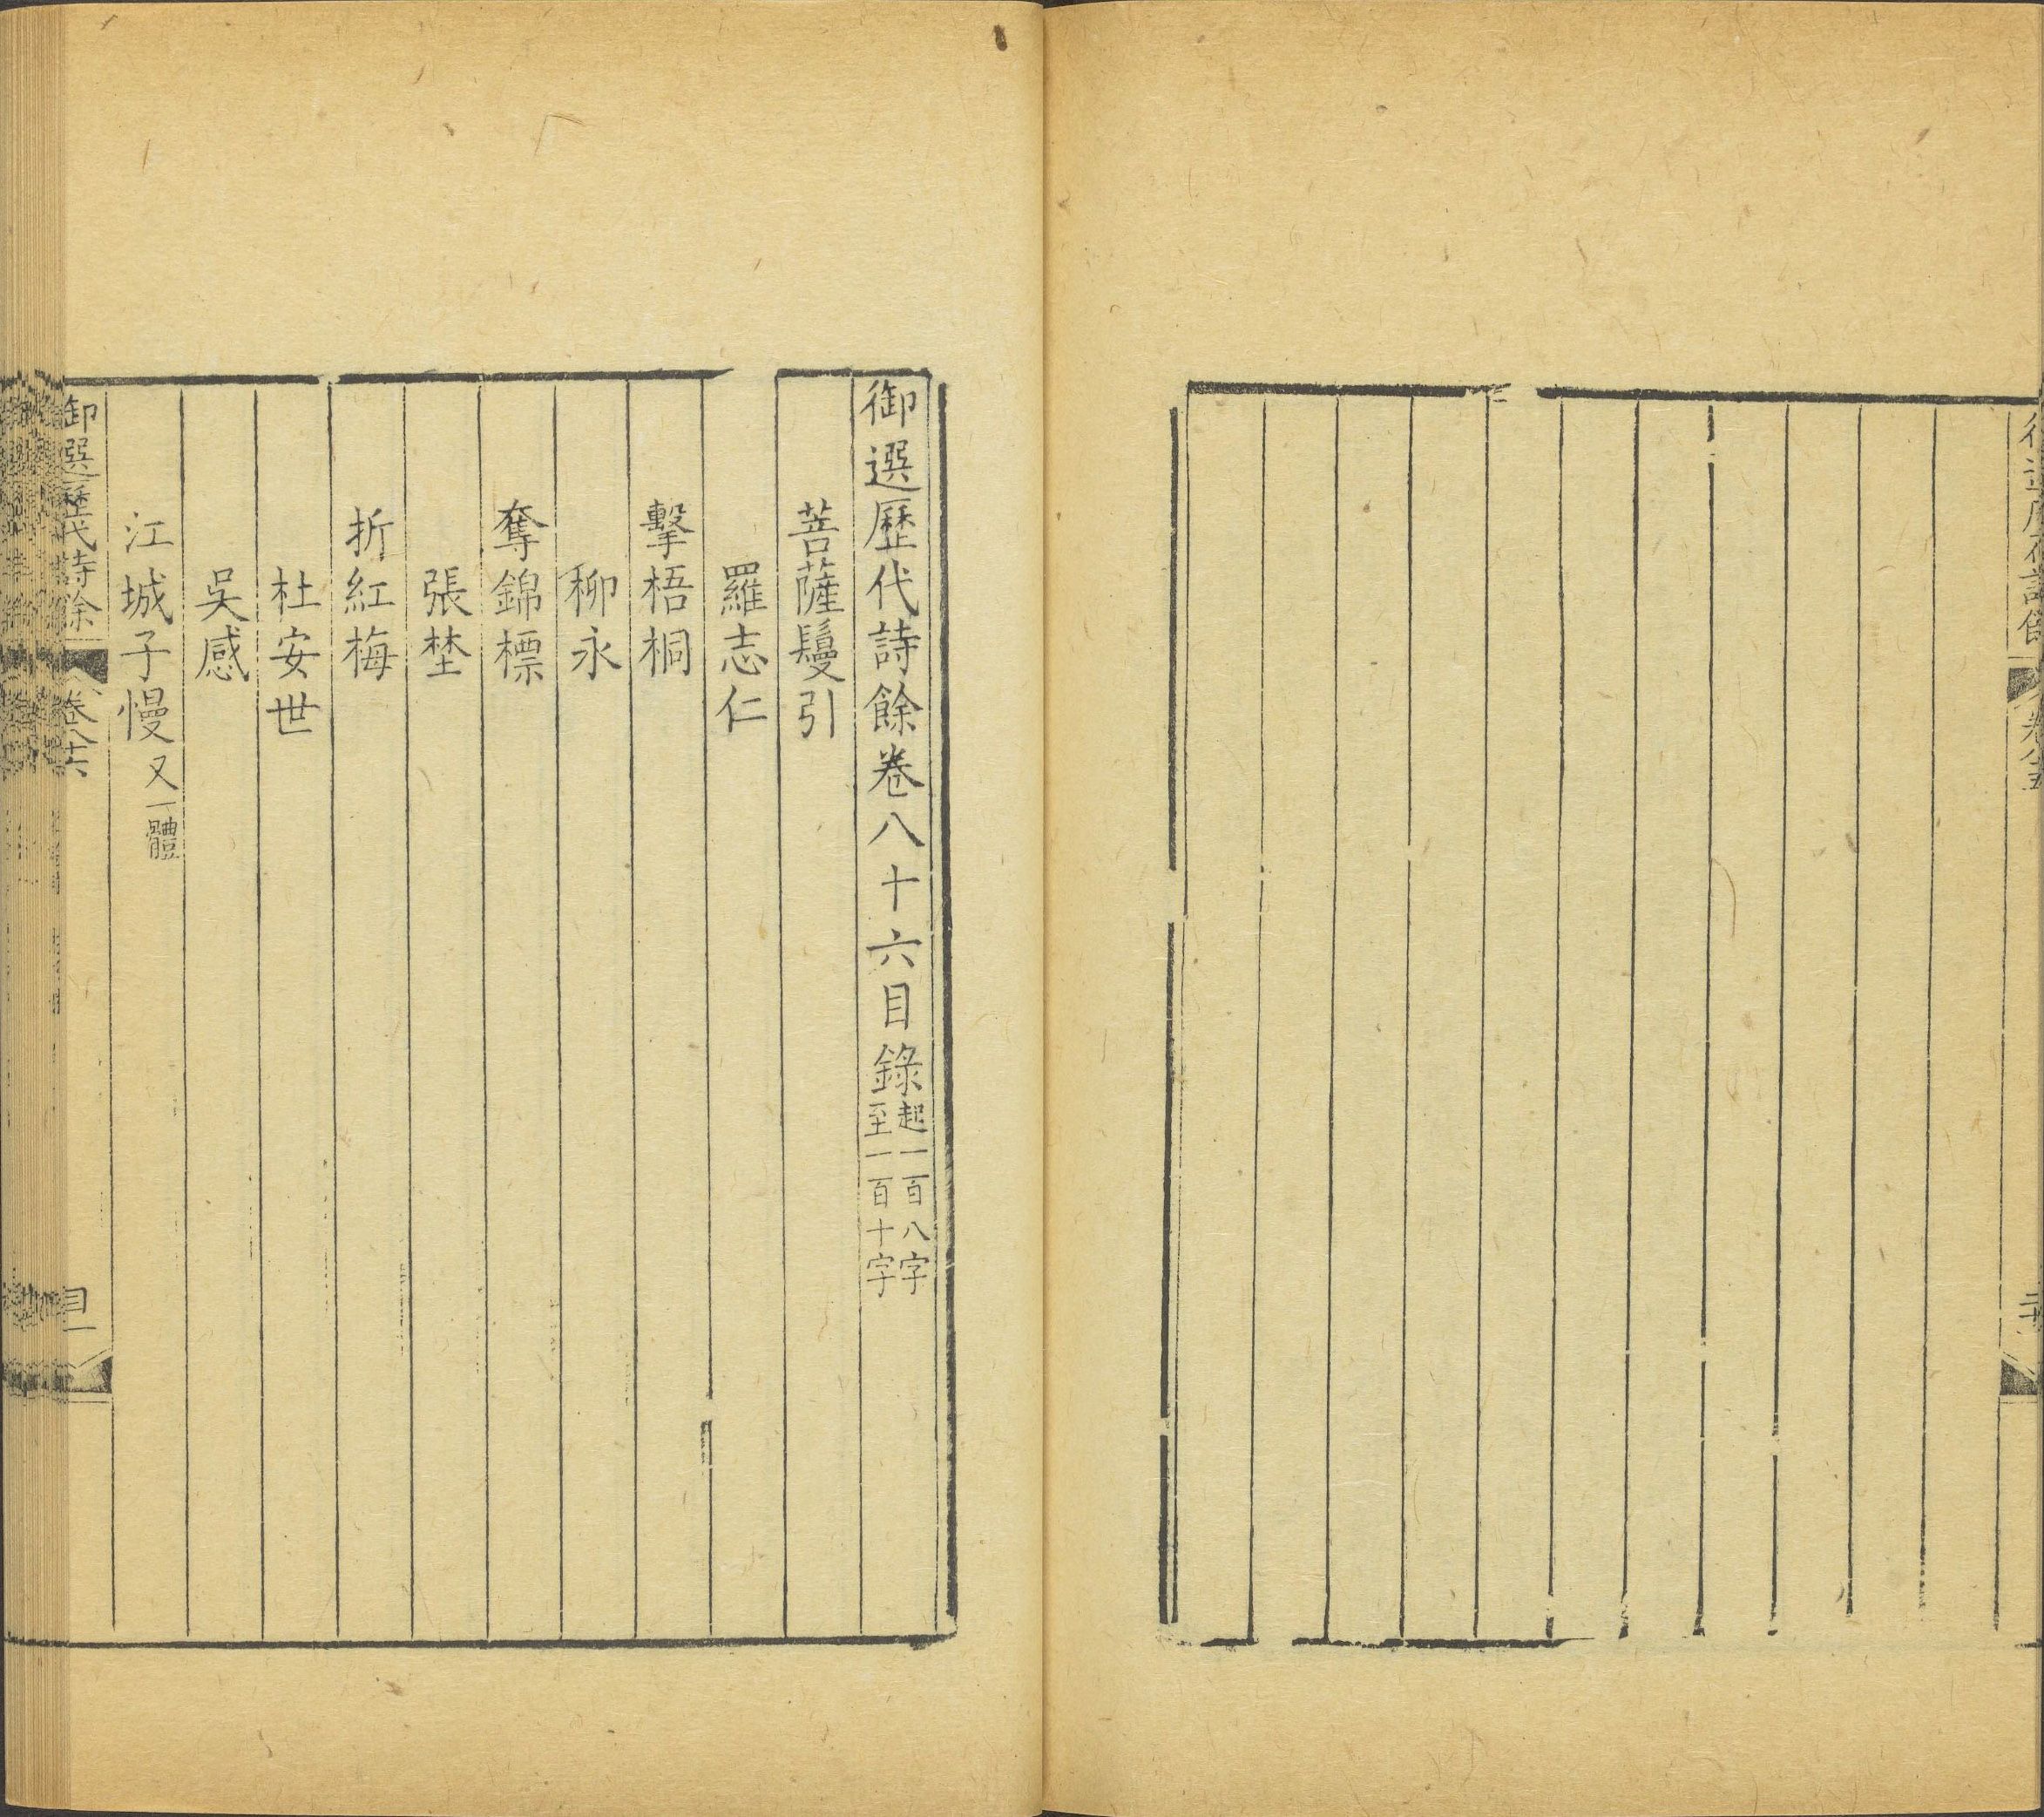 御選歷代詩餘卷八十六目錄起一百八字至一百十字
菩薩鬘引
羅志仁
擊梧桐
柳永
奪錦標
張埜
折紅梅
杜安世
吳感
江城子慢又一體
御選歷代詩餘 卷八十六 目一